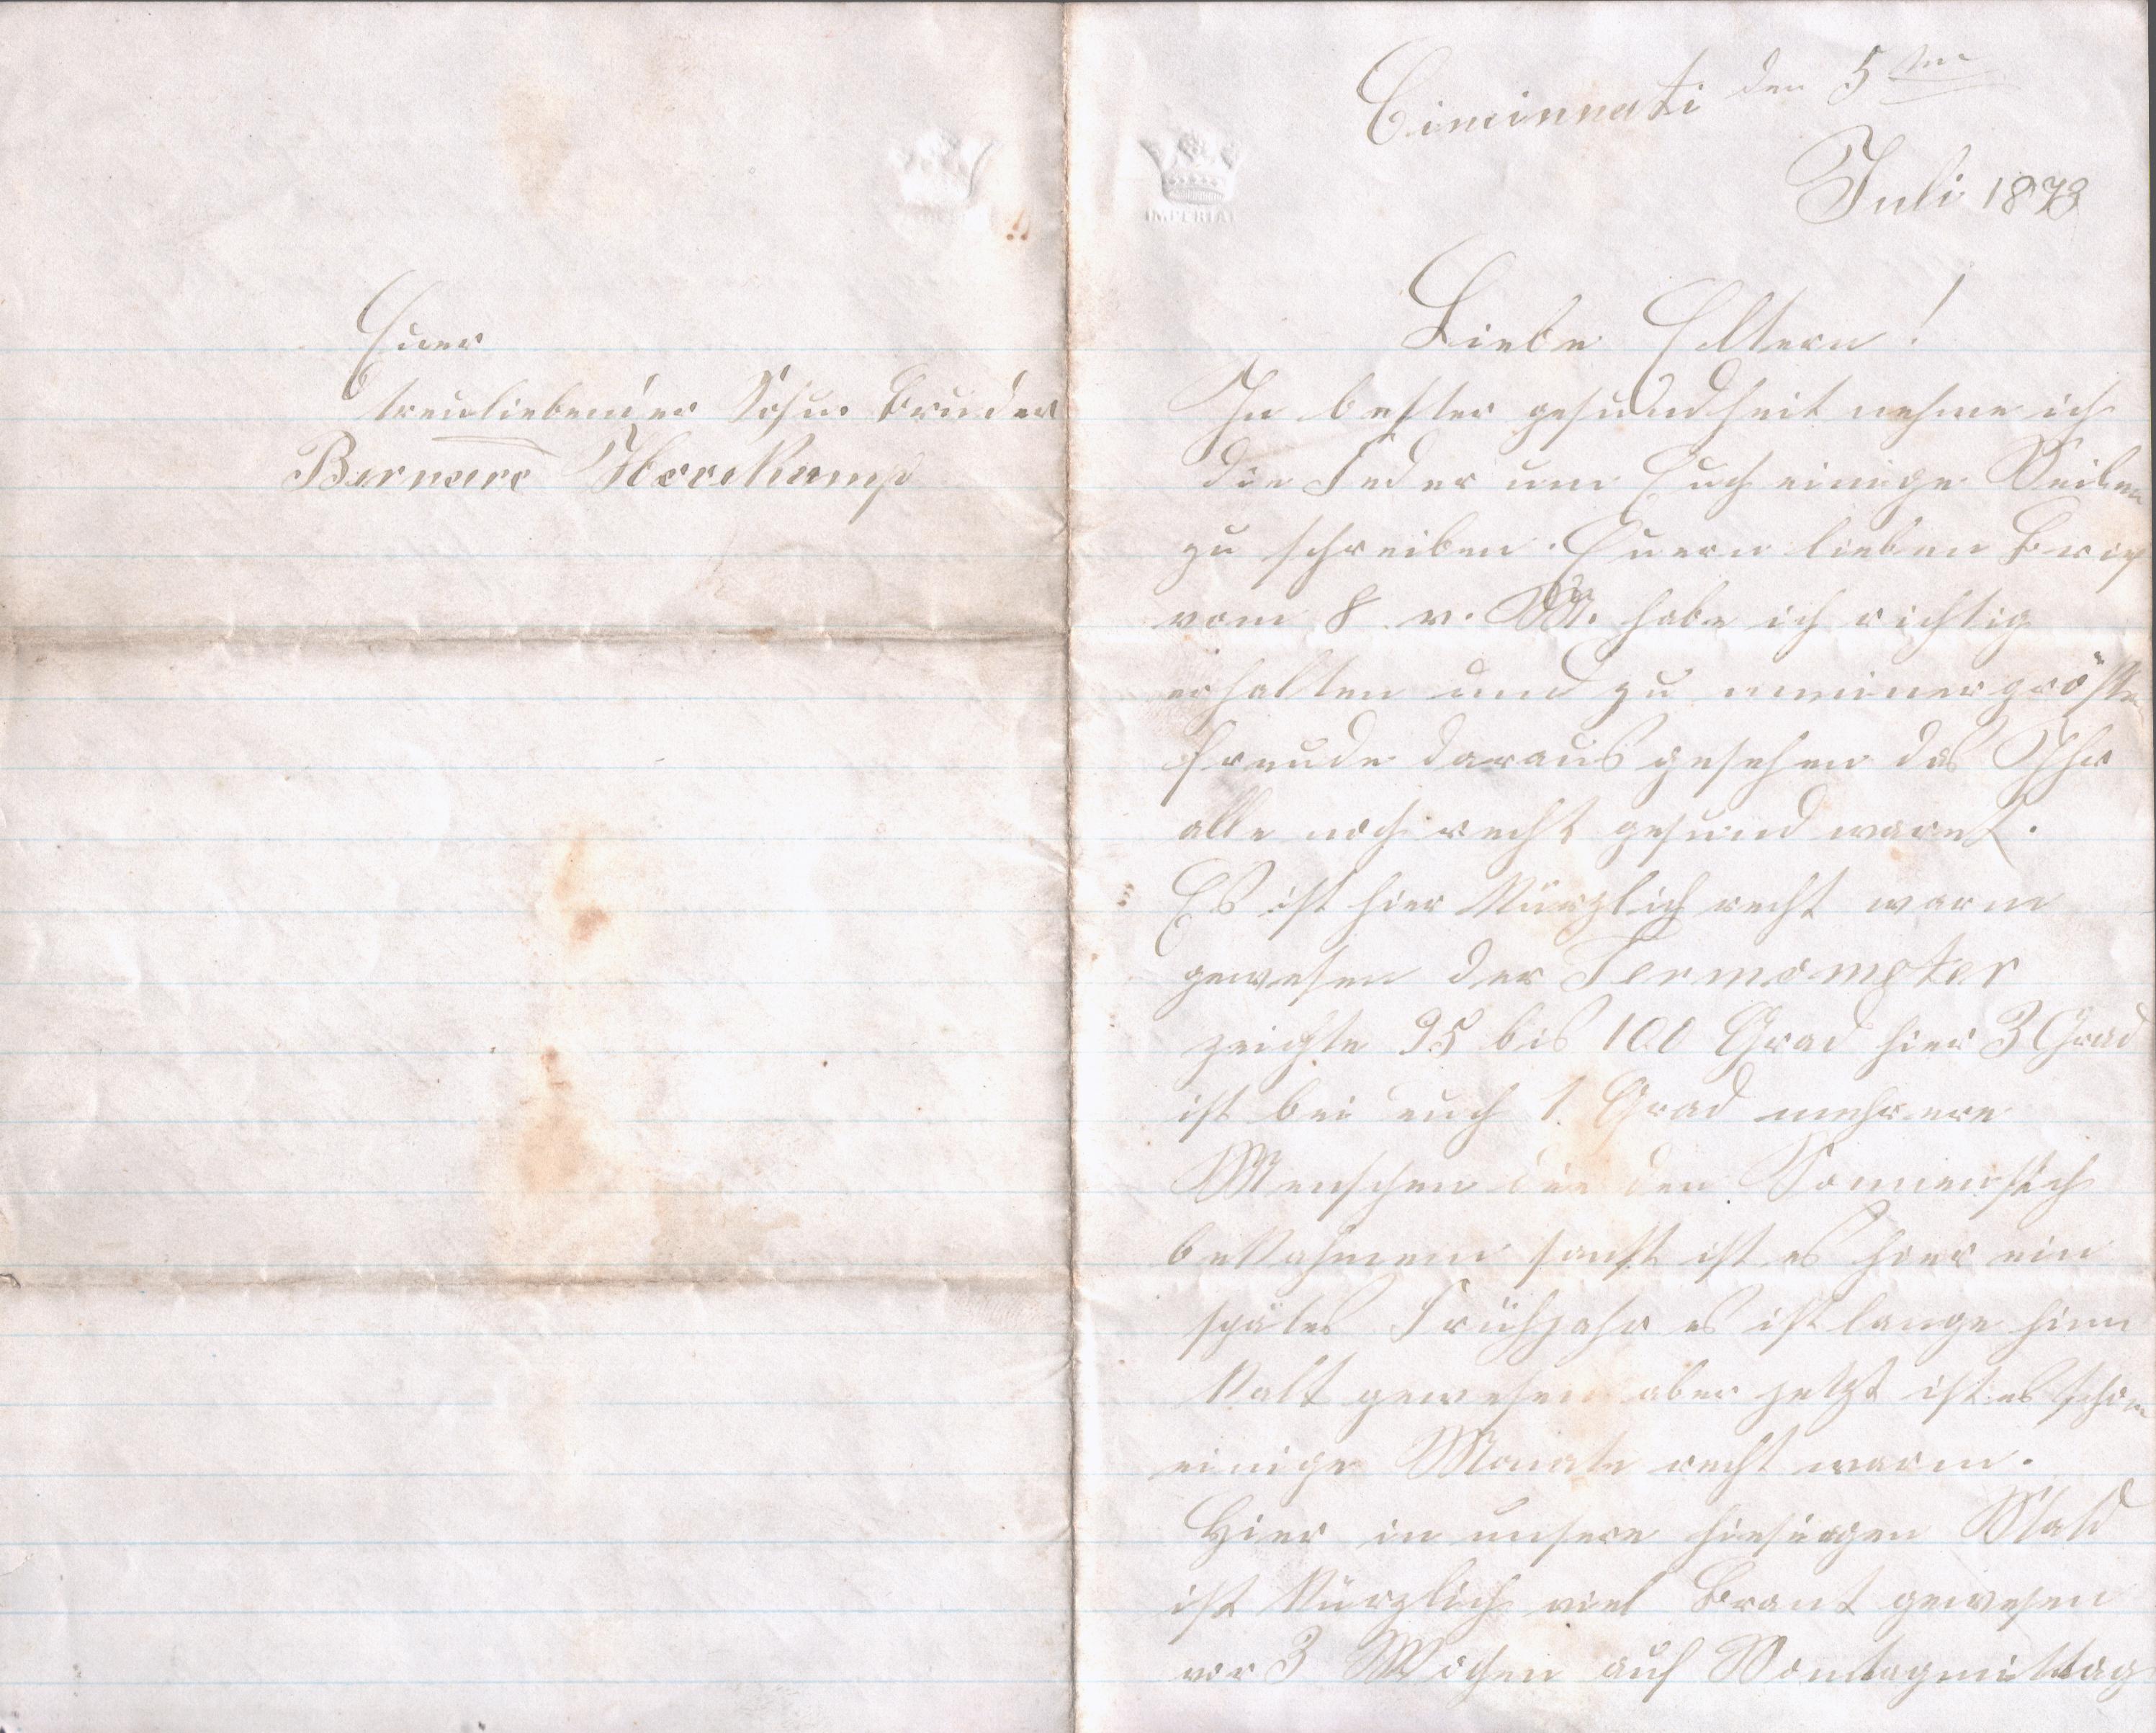 Euer
treuliebender Sohn Bruder
Bernard
IMPERIAL
Cincinnati den 5ten
Juli 1873
Liebe Eltern!
In bester gesundheit nehme ich
die Feder um Euch einige Zeilen
zu schreiben. Euern lieben Brief
vom 8 v. M. habe ich richtig
erhalten und zu meiner größten
freude daraus gesehen das Ihr
alle noch recht gesund waret.
Es ist hier kürzlich recht warm
gewesen der Termometer
zeigte 95 bis 100 Grad hier 3 Grad
ist bei euch 1 Grad mehrere
Menschen die den Sonnenstich
bekahmen sonst ist es hier ein
spätes Frühjahr es ist lange hinn
kalt gewesen aber jetzt ist es schon
einige Monate recht warm.
Hier in unsere hiesiegen Stadt
ist kürzlich viel Brant gewesen
vor 3 Wochen auf Sontagmittag